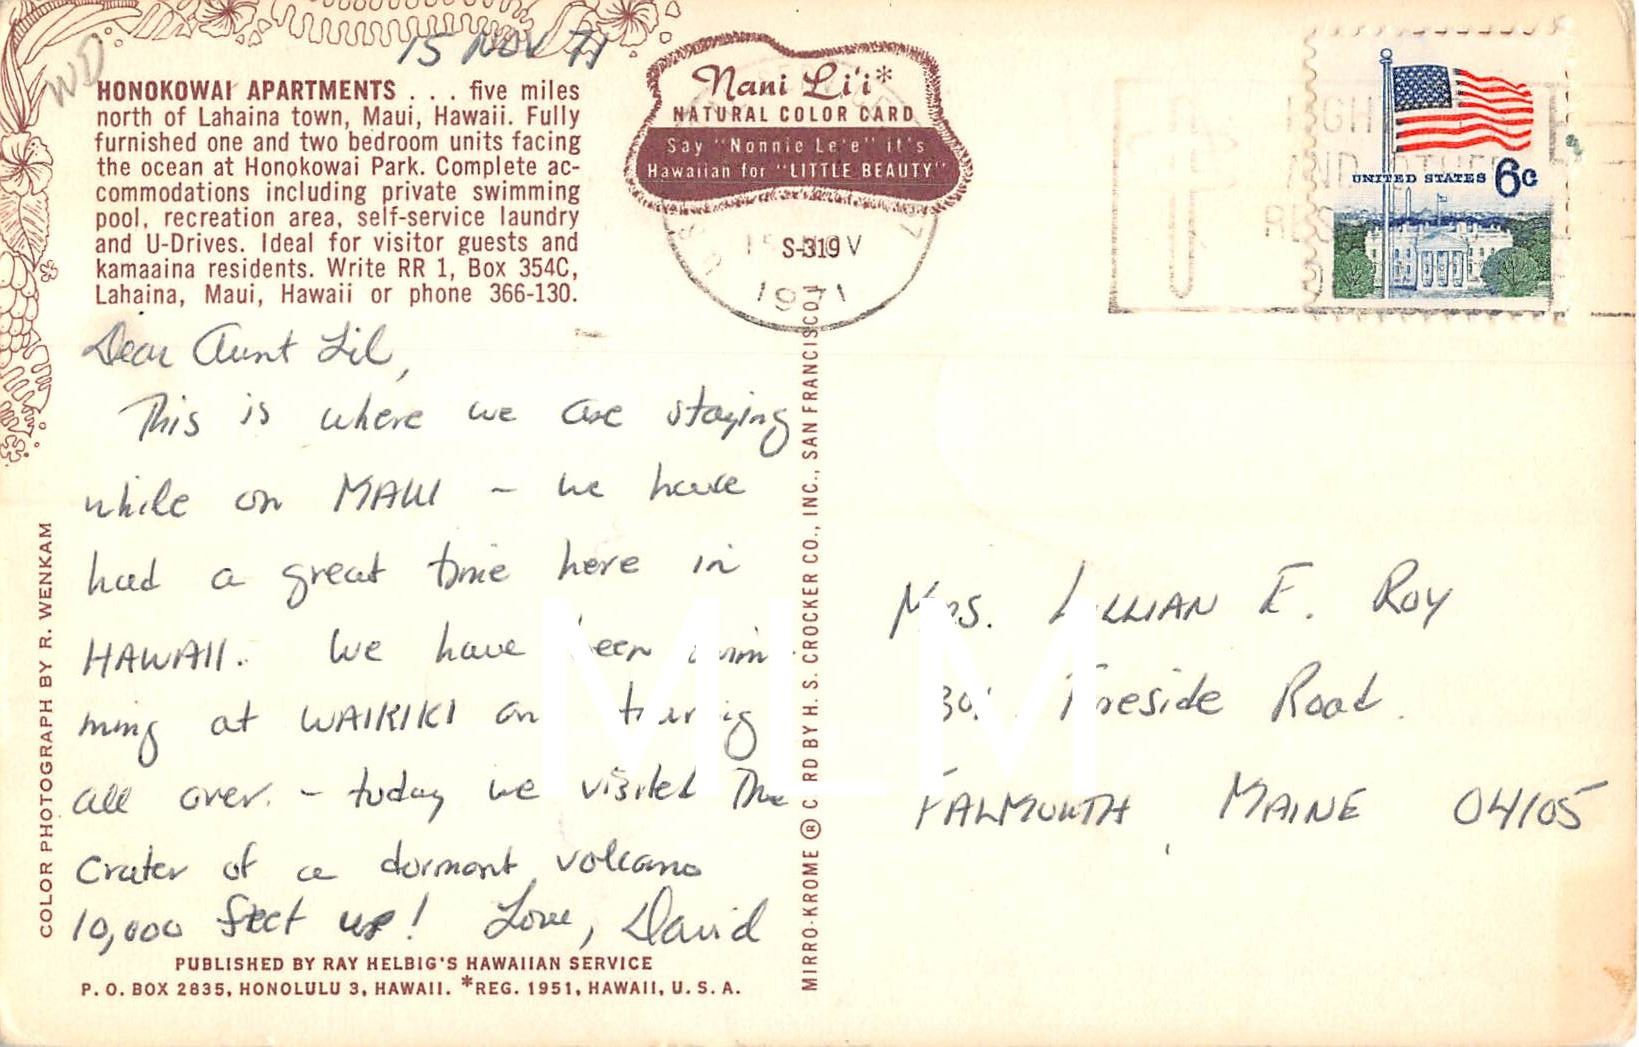 WD
15 NOV 71
HONOKOWAI APARTMENTS . . . five miles
north of Lahaina town, Maui, Hawaii. Fully
furnished one and two bedroom units facing
the ocean at Honokowai Park. Complete ac-
commodations including private swimming
pool, recreation area, self-service laundry
and U-Drives. Ideal for visitor guests and
kamaaina residents. Write RR 1, Box 354C,
Lahaina, Maui, Hawaii or phone 366-130.
Nani Li'i*
NATURAL COLOR CARD
Say "Nonnie Le'e" it's
Hawaiian for "LITTLE BEAUTY"
S-319
15 NOV
1971
UNITED STATES 6c
Dear Aunt Lil,
This is where we are staying
while on MAUI - we have
had a great time here in
HAWAII. We have been swim-
ming at WAIKIKI an touring
all over. - today we visited The
Crater of a dormant volcano
10,000 feet up! Love, David
Mrs. LILLIAN E. ROY
Fireside Road.
FALMOUTH MAINE 04105
COLOR PHOTOGRAPH BY R. WENKAM
MIRRO-KROME ® CARD BY H. S. CROCKER CO., INC., SAN FRANCISCO
PUBLISHED BY RAY HELBIG'S HAWAIIAN SERVICE
P. O. BOX 2835, HONOLULU 3, HAWAII. *REG. 1951, HAWAII, U. S. A.
MLM